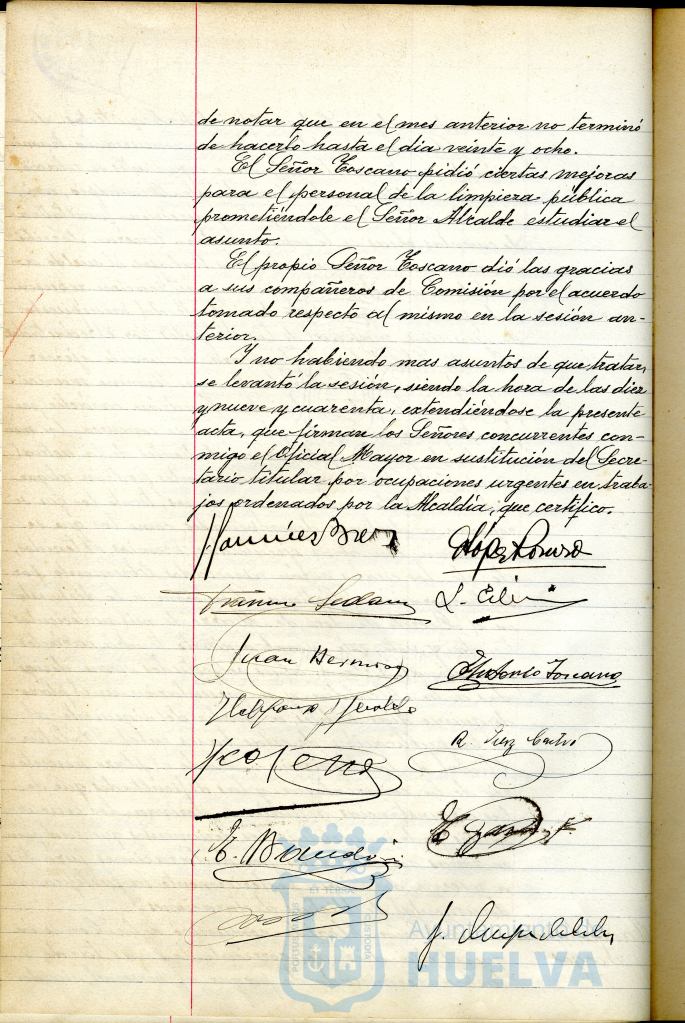 de notar que en el mes anterior no terminó
de hacerlo hasta el día veinte y ocho.
El Señor Toscano pidió ciertas mejoras
para el personal de la limpieza pública
prometiéndole el Señor Alcalde estudiar el
asunto.
El propio Señor Toscano dió las gracias
a sus compañeros de Comisión por el acuerdo
tomado respecto al mismo en la sesión an-
terior.
Y no habiendo mas asuntos de que tratar,
se levantó la sesión, siendo la hora de las diez
y nueve y cuarenta, extendiéndose la presente
acta, que firman los Señores concurrentes con-
migo el Oficial Mayor en sustitución del Secre-
tario titular por ocupaciones urgentes en traba-
jos ordenados por la Alcaldía, que certifico.
Juan
Antonio Toscano
Ayuntamiento de
HUELVA